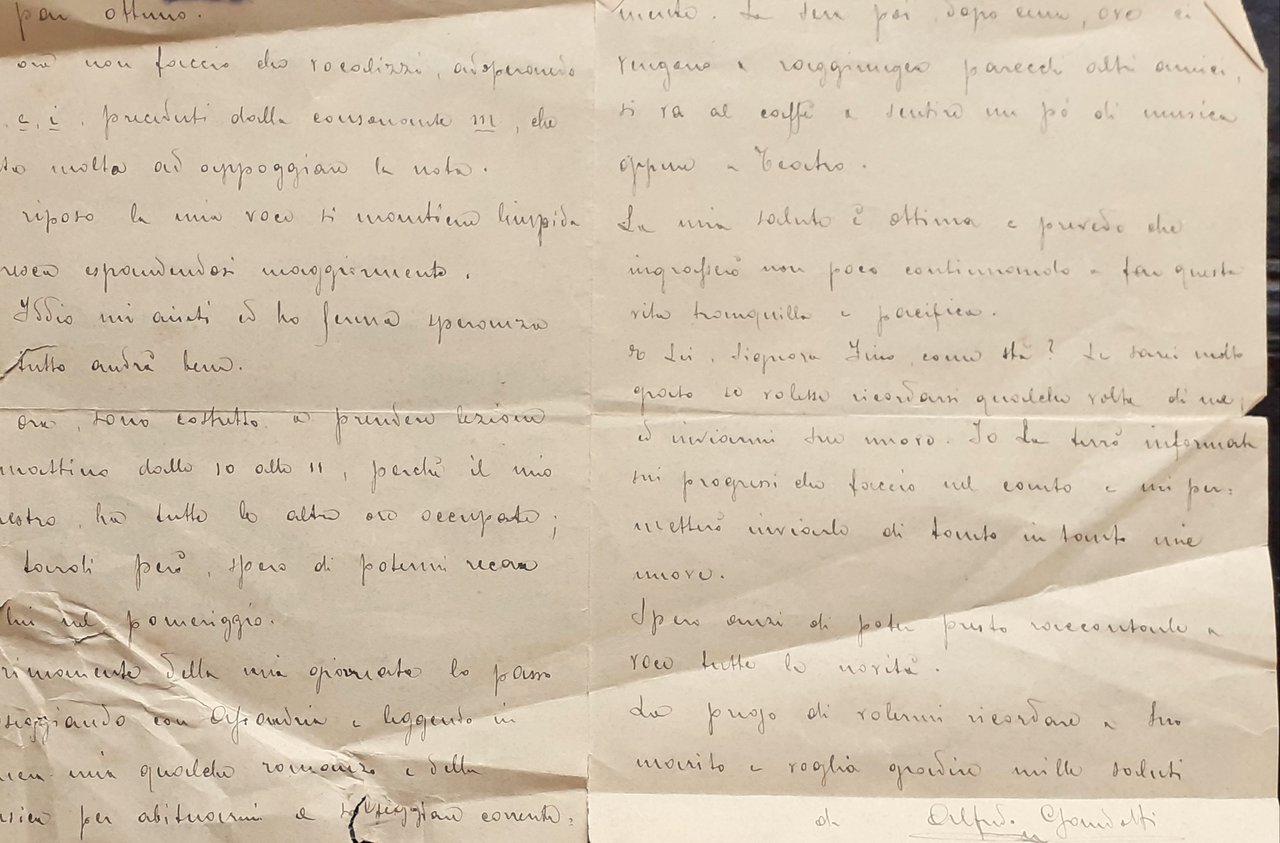 per ottimo.
ora non faccio che vocalizzi, adoperando
e, i, preceduti dalla consonante m, che
molto ad appoggiare la nota.
riposo la mia voce si mantiene limpida
espandendosi maggiormente.
Iddio mi aiuti ed ho ferma speranza
tutto andrà bene.
ora, sono costretto a prendere lezione
mattina dalle 10 alle 11, perchè il mio
ha tutte le altre ore occupate;
tardi però, spero di potermi recare
lui nel pomeriggio.
rimanente della mia giornata lo passo
con e leggendo in
mia qualche romanzo e della
per abituarmi a solfeggiare corrente=
mente. La sera poi, dopo cena, ove ci
vengono a raggiungere parecchi altri amici,
si va al caffè a sentire un pó di musica
oppure a Teatro.
La mia salute è ottima e prevedo che
ingrasserò non poco continuando a fare questa
vita tranquilla e pacifica.
E Lei, Signora come stà? Le sarei molto
grato se volesse ricordarsi qualche volta di me,
ed inviarmi sue nuove. Io La terrò informata
sui progressi che faccio nel canto e mi per=
metterò inviarle di tanto in tanto mie
nuove.
Spero anzi di poter presto raccontarle a
voce tutte le novità.
La prego di volermi ricordare a Suo
marito e voglia gradire mille saluti
di Alfredo